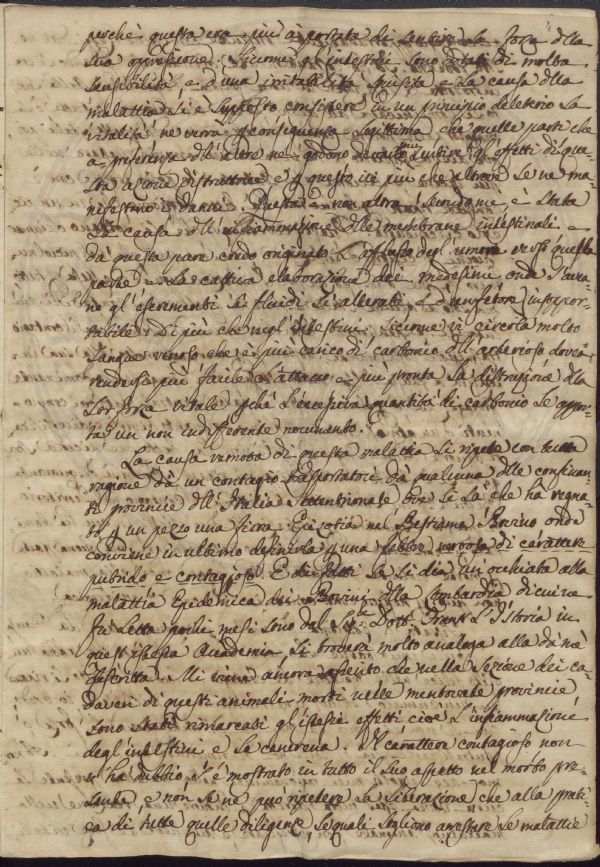 perchè questa era più a portata di sentire la forza dlla
sua oppressione. Siccome gl'intestini sono dotati di molta
sensibilità, e d'una irritabilità squisita e la causa dlla
malattia si è supposto consistere in un principio deleterio la
vitalità ne verrà p conseguenza legittima che quelle parti che
a preferenza dll'altre ne godono sentire gl'effetti di que-
sta azione distruttrice e p questo ivi più che altrove se ne ma-
nifestino i danni. Questa e non altra secondo me è stata
la causa dll'infiammazione dlle membrane intestinali e
da questa pure credo originato l'afflusso degl'umori verso quelle
parti e la cattiva elaborazione dei medesimi onde
gl'escrementi sì fluidi sì alterati, e d'un fetore insoppor-
tabile. Di più che negl'intestini siccome vi circola molto
sangue venoso che è più carico di carbonio dll'arterioso dovea
rendersi più facile l'attacco e più pronta la distruzione dlla
lor forza vitale pchè l'eccessiva quantità di carbonio le appor-
ta un non indifferente nocumento.
La causa remota di questa malattia si ripete con tutta
ragione da un contagio trasportatovi da qualcuna dlle confinan-
ti provincie dll'Italia Settentrionale ove si sà che ha regna-
to p un pezzo una fiera Epizotia nel Bestiame Bovino onde
conviene in ultimo definirla p una febbre nervosa di carattere
putrido e contagioso. E di fatti se si dia un'occhiata alla
malattia Epidemica dei Bovini dlla Lombardia di cui ne
fu letta pochi mesi sono dal Sig.re Dott. l'Istoria in
quest'istessa Accademia si troverà molto analoga alla da me
descritta. Mi viene ancora asserito che nella sezione dei ca-
daveri di questi animali morti nelle mentovate provincie
sono stati rimarcati gl'istessi effetti cioè l'infiammazione
degl'intestini e la cancrena. Il carattere contagioso non
v'ha dubbio s'è mostrato in tutto il suo aspetto nel morbo pre-
sente, e non se ne può ripetere la liberazione che alla prati-
ca di tutte quelle diligenze le quali sogliono arrestare le malattie